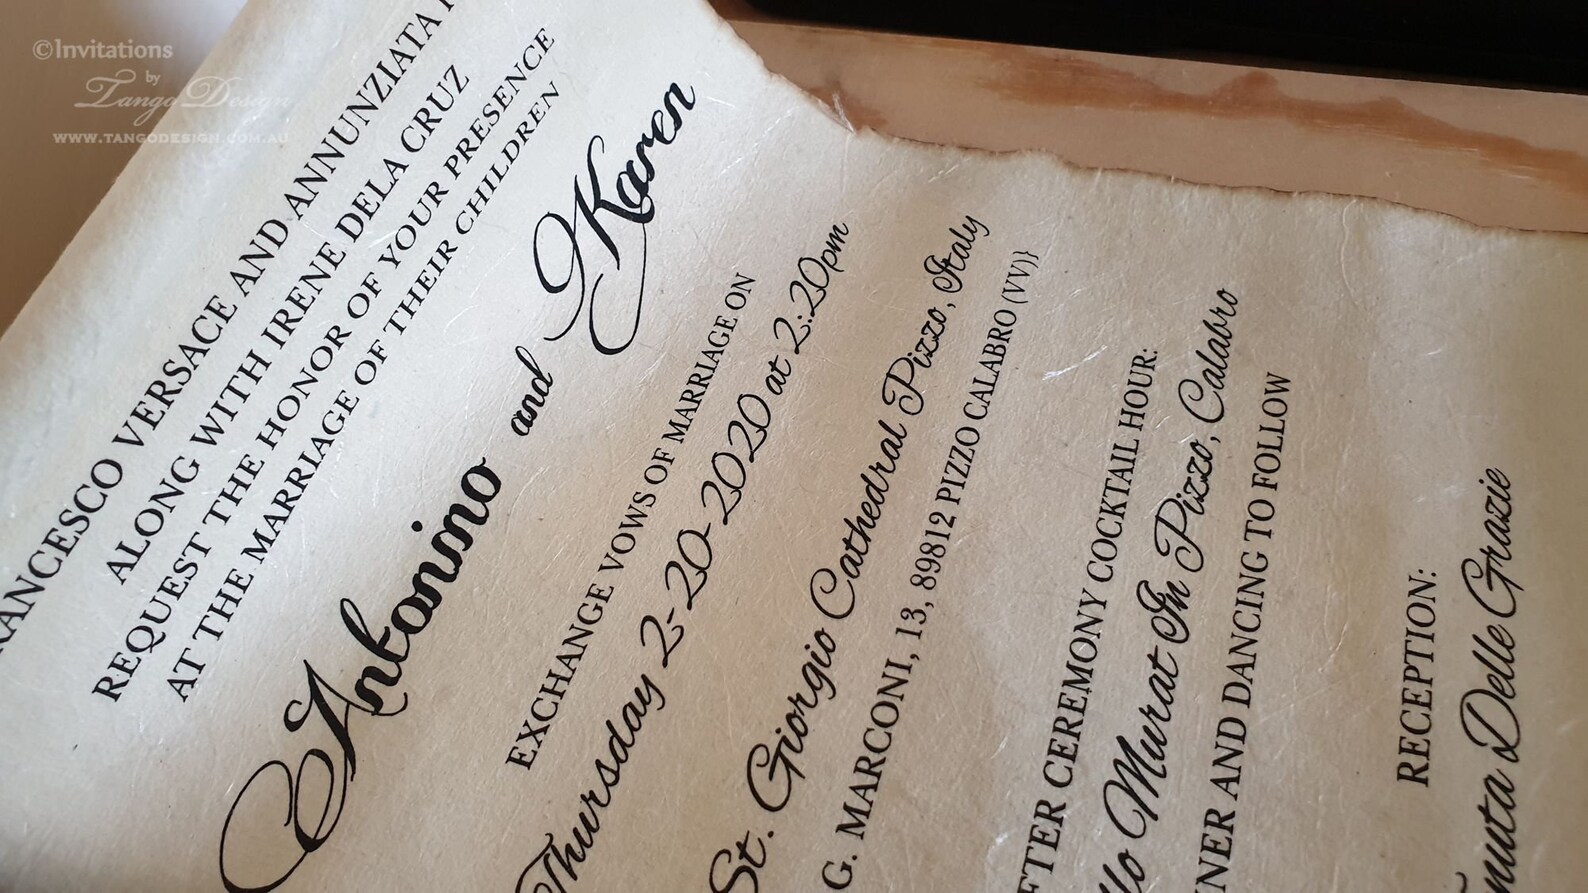 ©Invitations
by
Tango Design
WWW.TANGODESIGN.COM.AU
RANCESCO VERSACE AND ANNUNZIATA
ALONG WITH IRENE DELA CRUZ
REQUEST THE HONOR OF YOUR PRESENCE
AT THE MARRIAGE OF THEIR CHILDREN
Antonino and Karen
EXCHANGE VOWS OF MARRIAGE ON
Thursday 2-20-2020 at 2:20pm
St. Giorgio Cathedral Pizzo, Italy
G. MARCONI, 13, 89812 PIZZO CALABRO (VV)}
FTER CEREMONY COCKTAIL HOUR:
llo Murat In Pizzo, Calabro
NNER AND DANCING TO FOLLOW
RECEPTION:
nuta Delle Grazie